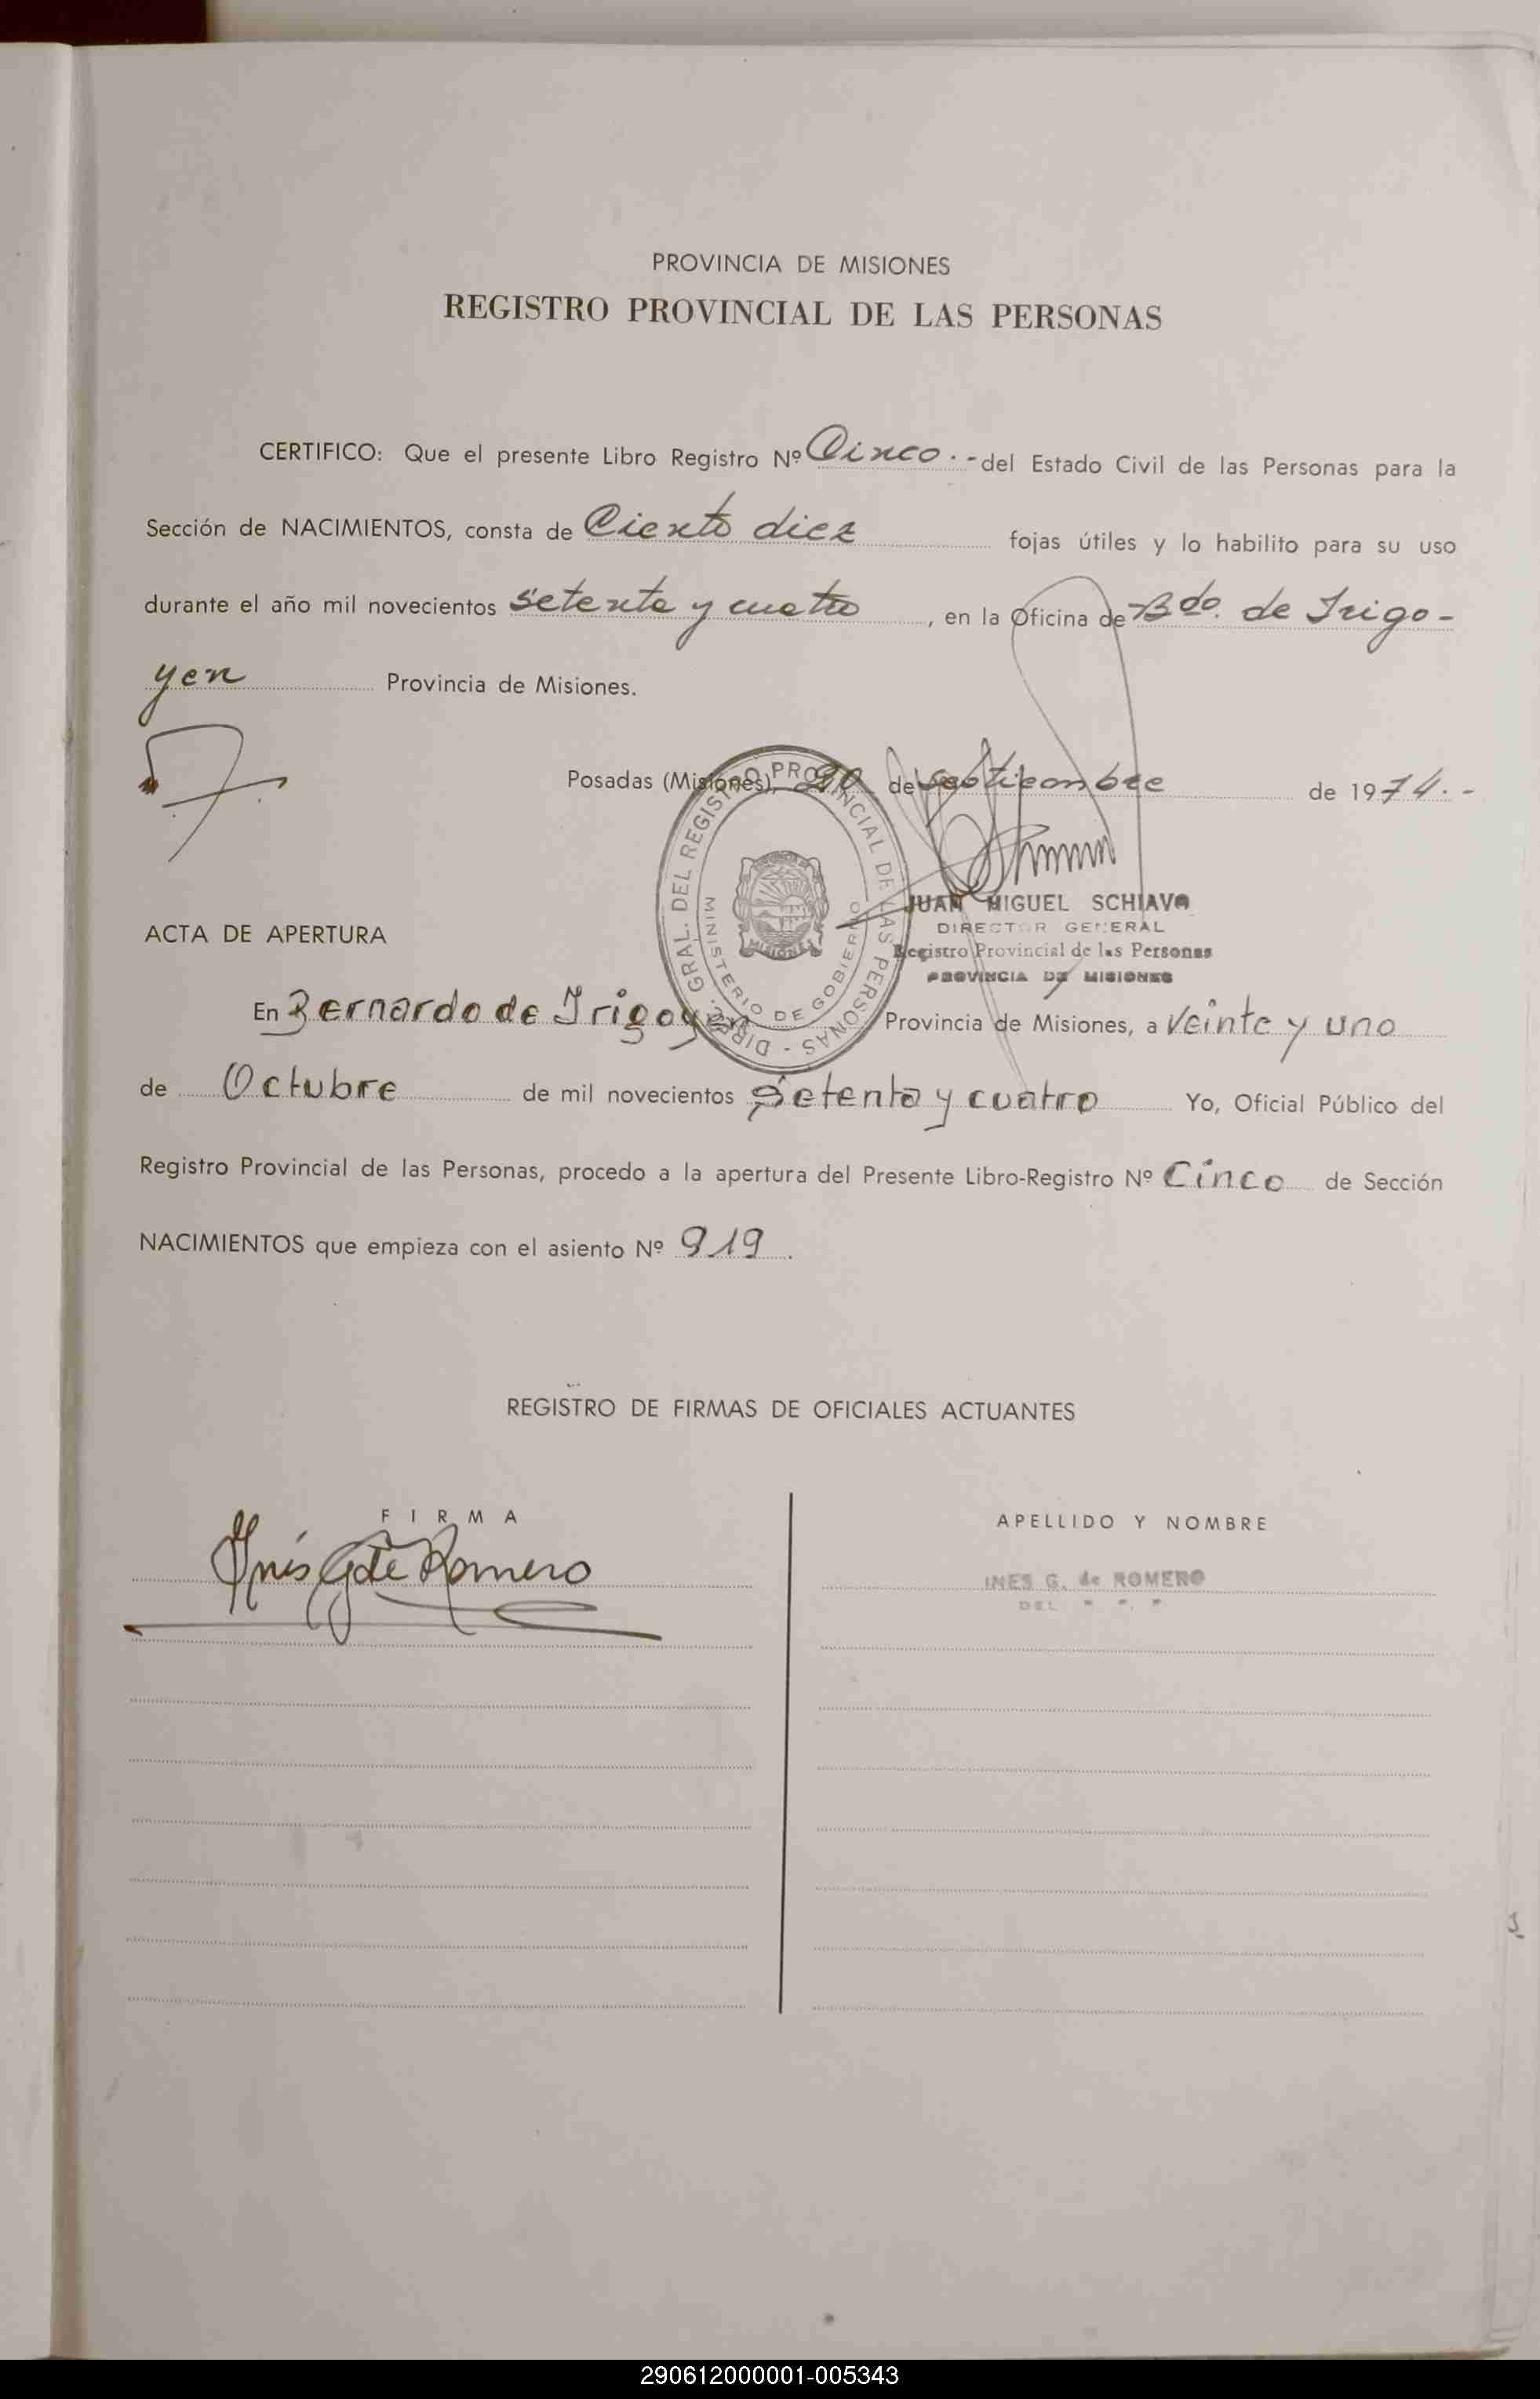 PROVINCIA DE MISIONES
REGISTRO PROVINCIAL DE LAS PERSONAS
CERTIFICO: Que el presente Libro Registro Nº Cinco.- del Estado Civil de las Personas para la
Sección de NACIMIENTOS, consta de Ciento diez fojas útiles y lo habilito para su uso
durante el año mil novecientos setenta y cuatro, en la Oficina de Bdo. de Irigo-
yen Provincia de Misiones.
Posadas (Misiones), 20 de septiembre de 1974.-
DIREC. GRAL. DEL REGISTRO PROVINCIAL DE LAS PERSONAS -
MINISTERIO DE GOBIERNO
MISIONES
JUAN MIGUEL SCHIAVO
DIRECTOR GENERAL
Registro Provincial de las Personas
PROVINCIA DE MISIONES
ACTA DE APERTURA
En Bernardo de Irigoyen Provincia de Misiones, a veinte y uno
de Octubre de mil novecientos Setenta y cuatro Yo, Oficial Público del
Registro Provincial de las Personas, procedo a la apertura del Presente Libro-Registro Nº Cinco de Sección
NACIMIENTOS que empieza con el asiento Nº 919.
REGISTRO DE FIRMAS DE OFICIALES ACTUANTES
FIRMA
APELLIDO Y NOMBRE
Inés G de Romero
INES G. de ROMERO
DEL
290612000001-005343